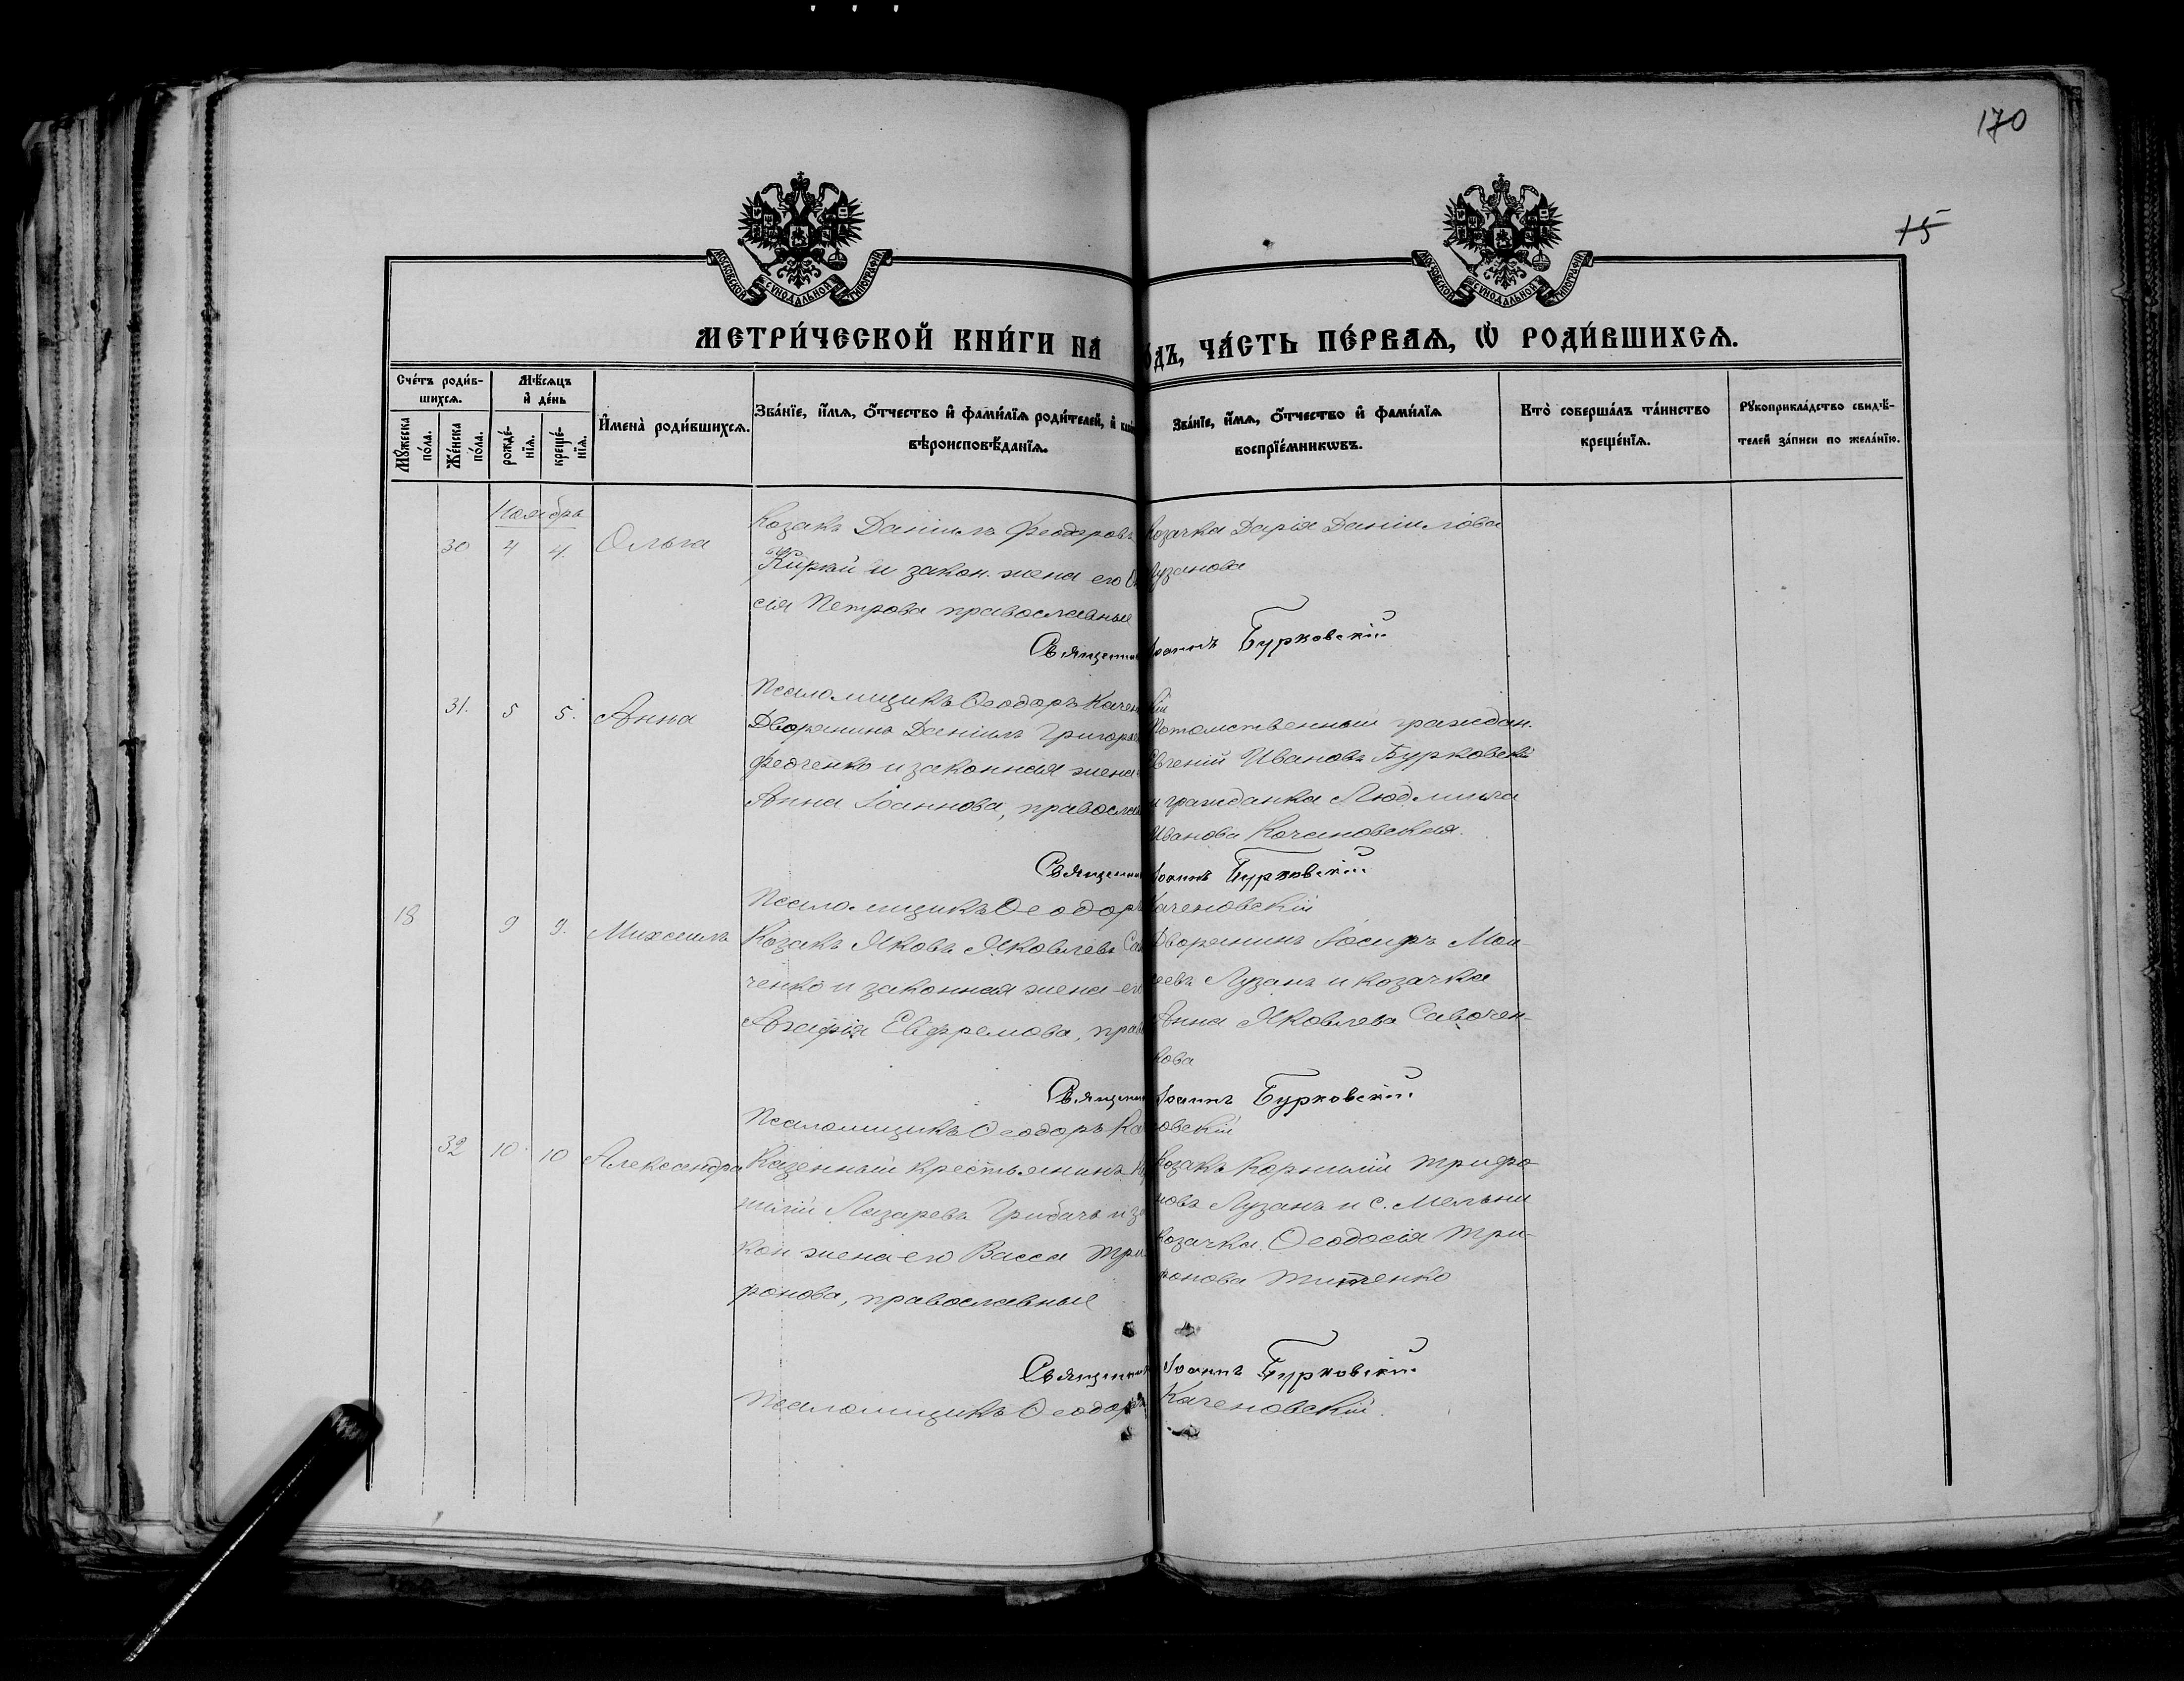 170
15
МОСКОВСКОЙ СѴНОДАЛЬНОЙ ТИПОГРАФІИ
МОСКОВСКОЙ СѴНОДАЛЬНОЙ ТИПОГРАФІИ
МЕТРИ́ЧЕСКОЙ КНИ́ГИ НА
ОДЪ, ЧА́СТЬ ПЕ́РВАѦ, Ѡ РОДИ́ВШИХСѦ.
Сче́тъ роди́в-
шихсѧ.
Мѣ́сѧцъ
и҆ де́нь
Мꙋ́жеска по́ла.
Же́нска по́ла.
рожде́-
нїѧ.
креще́-
нїѧ.
И҆мена̀ роди́вшихсѧ.
Зва́нїе, и҆́мѧ, ѻ҆́тчество и҆ фами́лїѧ роди́телей, и҆
вѣроисповѣ́данїѧ.
Зва́нїе, и҆́мѧ, ѻ҆́тчество и҆ фами́лїѧ
воспрїе́мникѡвъ.
Кто̀ соверша́лъ та́инство
креще́нїѧ.
Рꙋкоприкла́дство свидѣ́-
телей за́писи по жела́нїю.
Ноябрь
30 4 4. Ольга
Козакъ Даніилъ Феодоровъ
и закон. жена его
сія Петрова православные
Козачка Дарія Даніилова
Лузанова
Священник Іоаннъ Бурковскій
Псаломщикъ Ѳеодоръ Качен кій
31. 5 5. Анна
Дворянинъ Даніилъ Григорьев
Федченко и законная жена
Анна Іоаннова, православ
Потомственный граждан.
Евгеній Ивановъ Бурковскій
и гражданка Людмила
Иванова Качановская.
Священник Іоаннъ Бурковскій
Псаломщикъ Ѳеодоръ Каченовскій
18 9 9. Михаилъ
Козакъ Яковъ Яковлевъ Сав
ченко и законная жена его
Агафія Евфремова, прав
Дворянинъ Іосифъ Мои-
сеевъ Лузанъ и козачка
Анна Яковлева Савочен-
кова
Священник Іоаннъ Бурковскій
Псаломщикъ Ѳеодоръ Ка овскій
32 10 10 Александра
Казенный крестьянинъ
нилій Лазаревъ Грибачъ и за
кон жена его Васса Три
фонова, православные
Козакъ Корнилій Трифо-
новъ Лузанъ и с. Мельни
козачка Ѳеодосія Три-
фонова Титенко
Священник Іоаннъ Бурковскій
Псаломщикъ Ѳеодоръ Каченовскій.